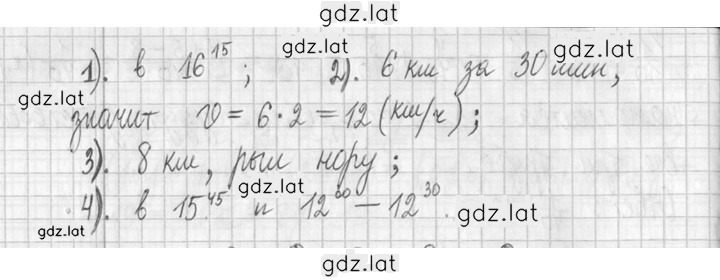 gdz.lat
gdz.lat
gdz.lat
1). в 16¹⁵; 2). 6 км за 30 мин,
gdz.lat
значит v = 6 · 2 = 12 (км/ч);
3). 8 км, рыл нору;
gdz.lat
4). в 15⁴⁵ и 12⁰⁰ – 12³⁰.
gdz.lat
gdz.lat
gdz.lat